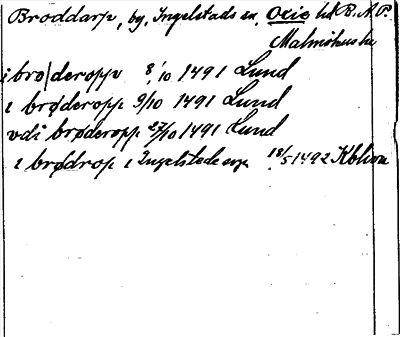 Broddarp, by, Ingelstads sn, Oxie hd R.A.P.
Malmöhus län
i bro|deropp 8/10 1491 Lund
i brøderopp 9/10 1491 Lund
vdi brøderopp 27/10 1491 Lund
i brødrop i Ingelstede 18/5 1492 Kbhvn